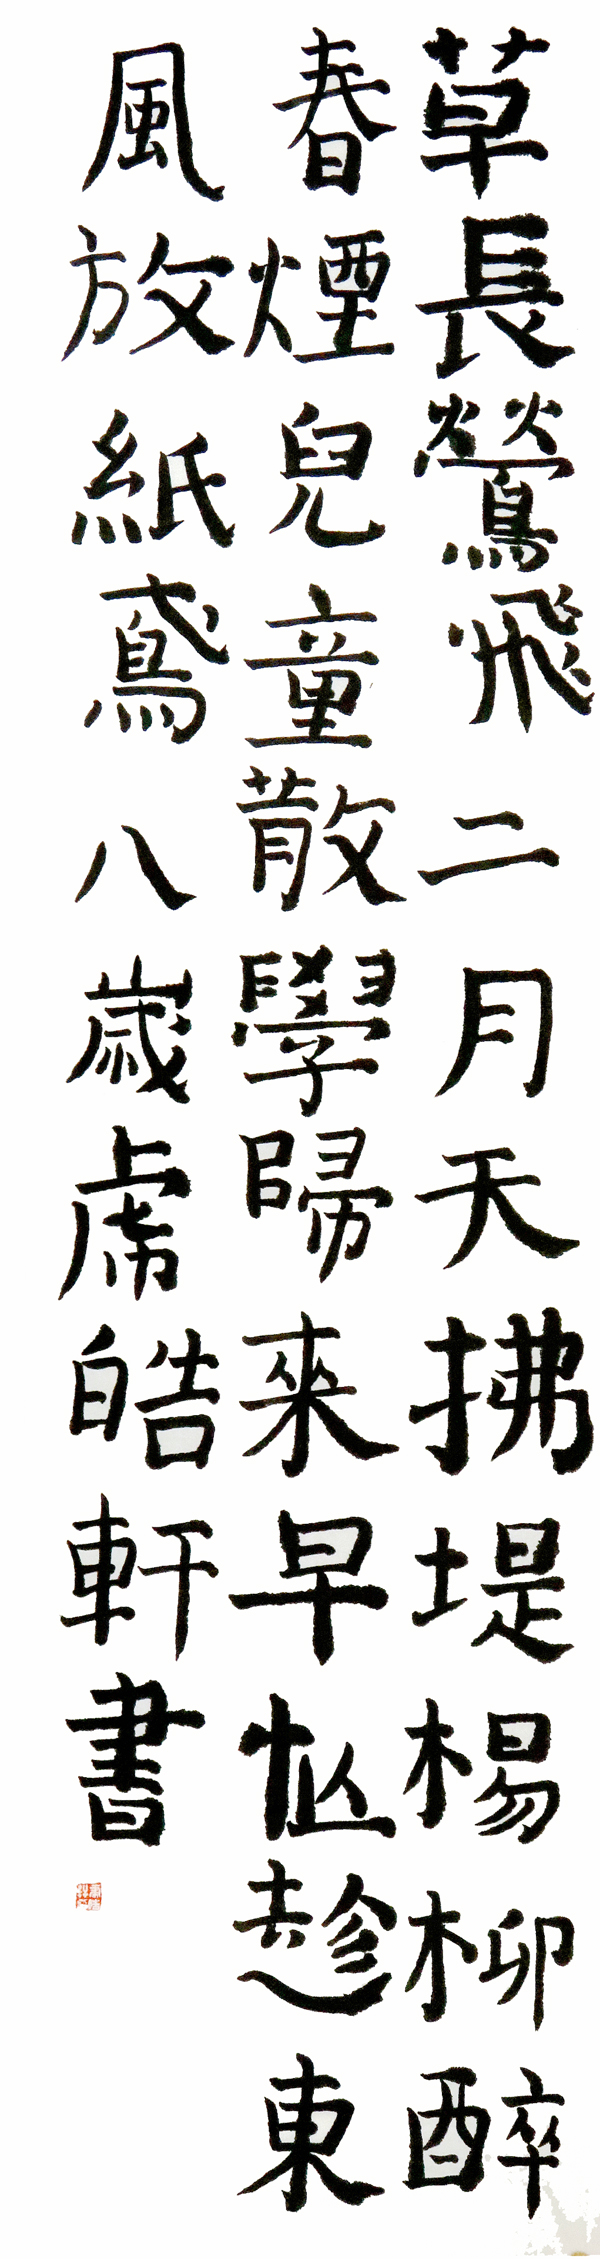 草長鶯飛二月天拂堤楊柳醉
春煙兒童散學歸來早忙趁東
風放紙鳶八歲皓軒書